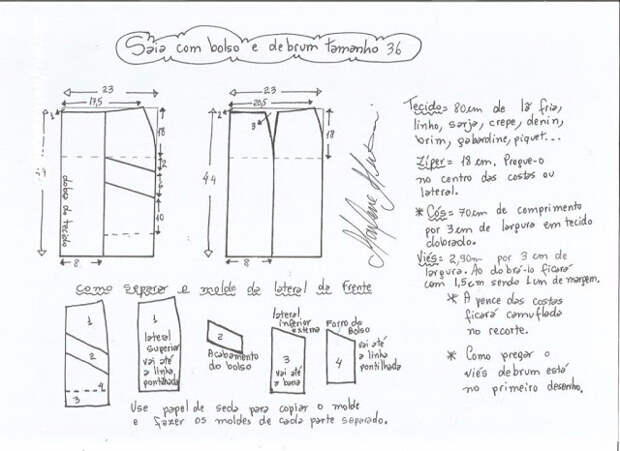 Saia com bolso e debrum tamanho 36
23
17,5
1
18
2
10
dobra do tecido
8
23
20,5
3
18
44
8
Marlene Mukai
Tecido = 80cm de lã fria,
linho, sarja, crepe, denin,
brim, gabardine, piquet...
Zíper = 18cm. Pregue-o
no centro das costas ou
lateral.
* Cós = 70cm de comprimento
por 3cm de largura em tecido
dobrado.
Viés = 2,90m por 3 cm de
largura. Ao dobrá-lo ficará
com 1,5cm sendo 1cm de margem.
* A pence das costas
ficará camuflada
no recorte.
* Como pregar o
viés debrum está
no primeiro desenho.
Como separar o molde da lateral da frente
1
2
3
4
1
lateral
superior
vai até
a linha
pontilhada
2
Acabamento
do bolso
lateral
inferior
externa
3
vai até
a barra
Forro do
Bolso
vai até
a linha
pontilhada
4
Use papel de seda para copiar o molde
e fazer os moldes de cada parte separado.